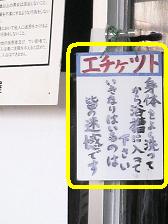 エチケット
身体を洗って
から浴槽に入って
下さい
いきなりはいるのは
皆の迷惑です